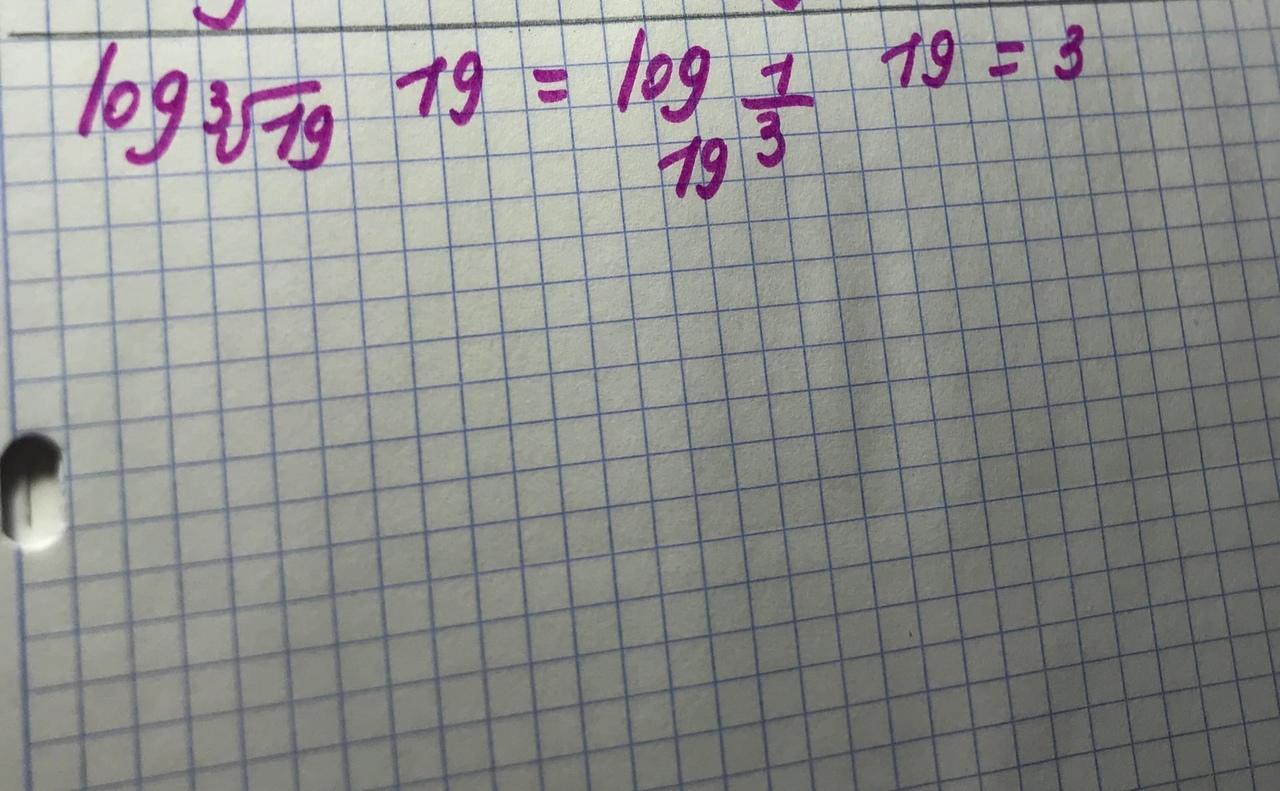 log ∛19 19 = log 19^(1/3) 19 = 3